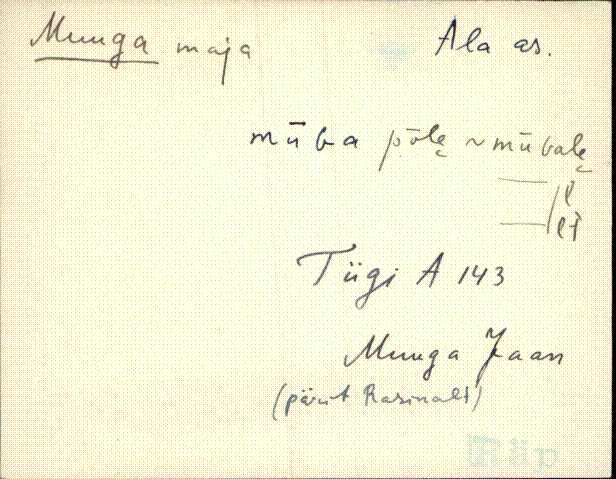 Munga maja
Ala as.
mūba põlę ~ mūbalę
l
lt
Tiigi A 143
Munga Jaan
(pärit Rasinalt)
Räp